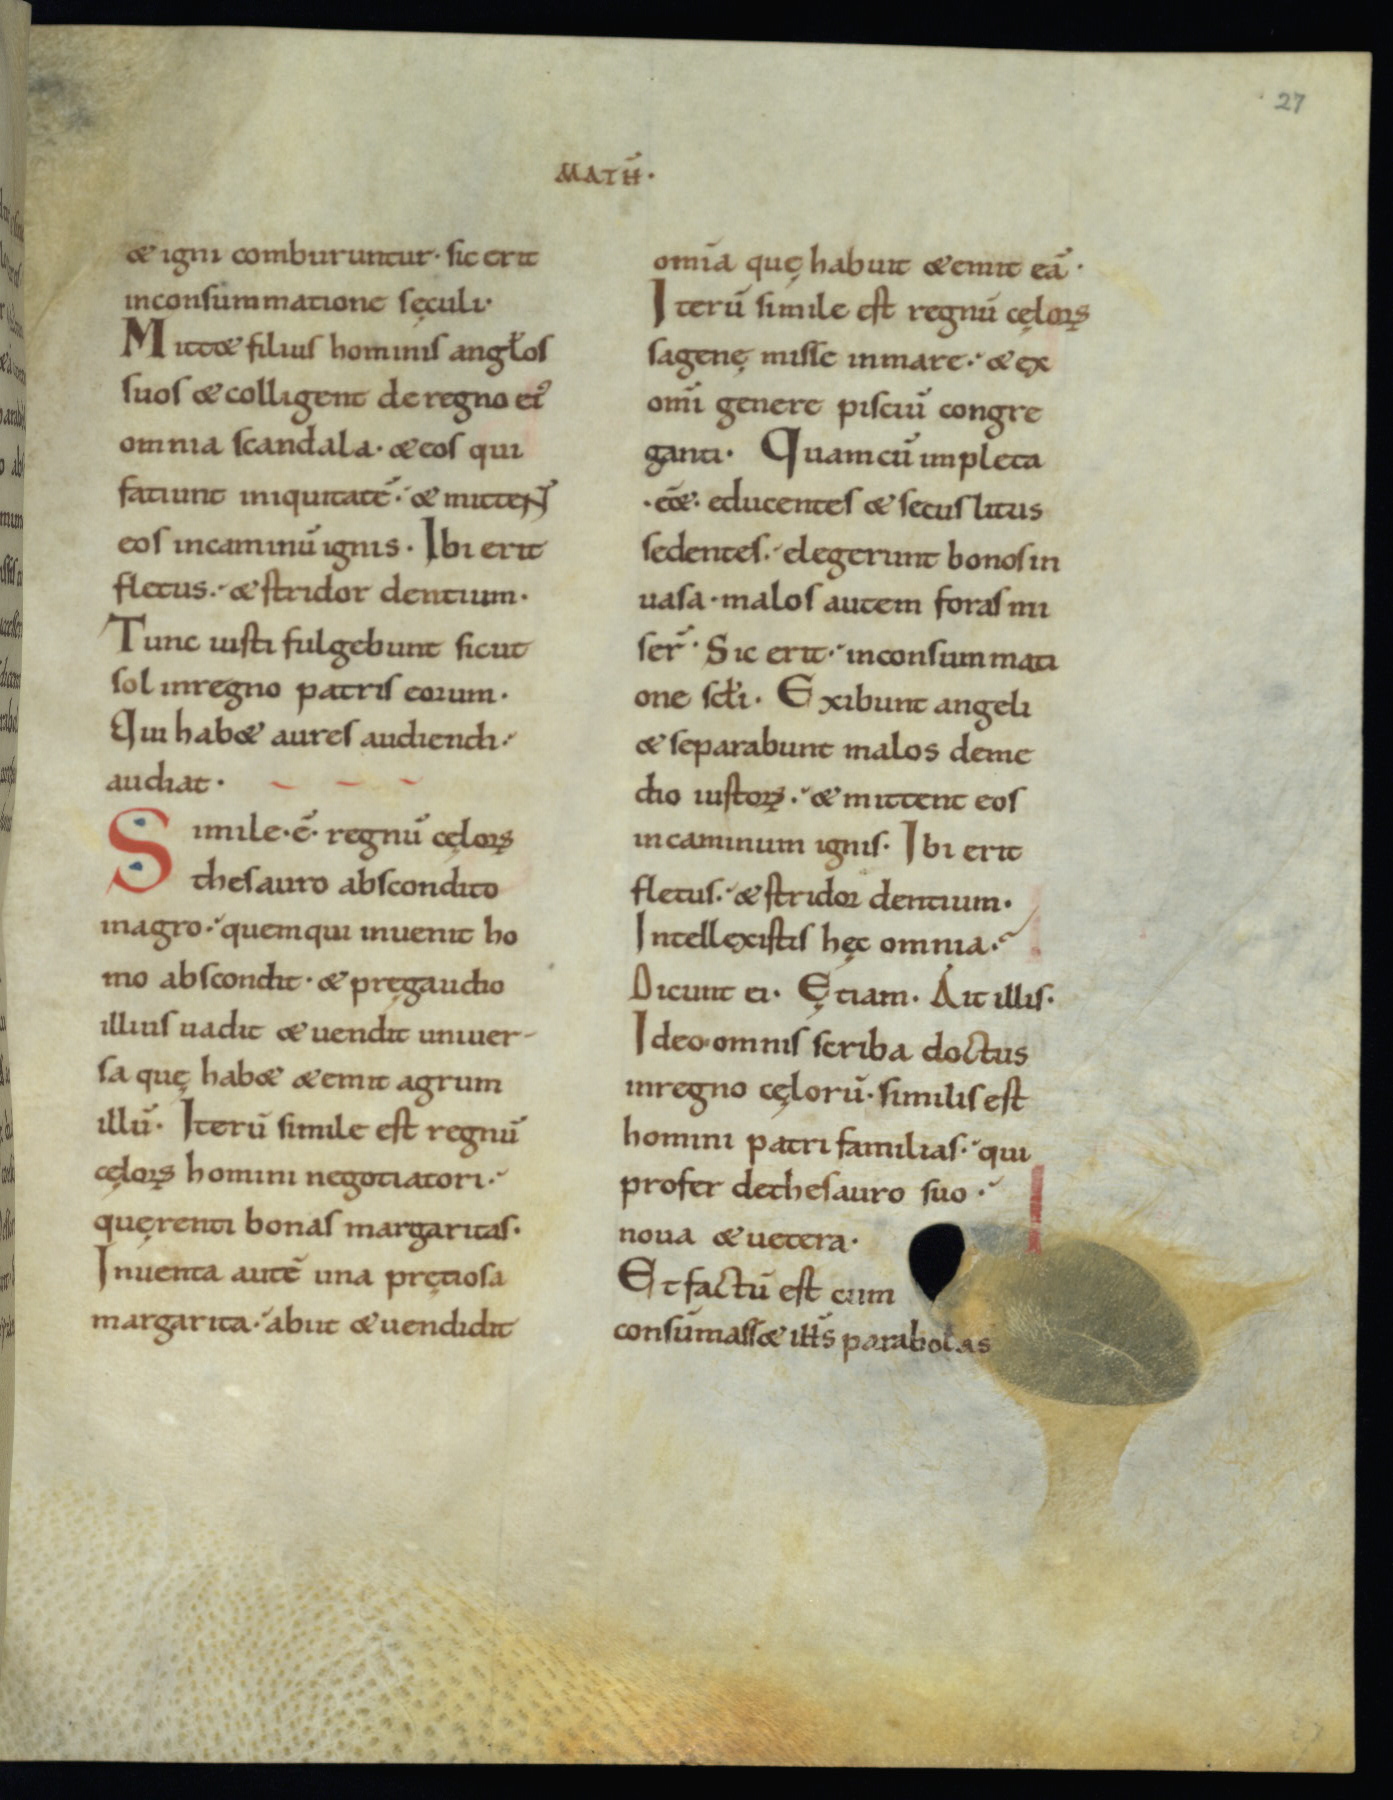 27
MATħ̃·
& igni comburuntur· sic erit
inconsummatione sęculi·
Mitt& filius hominis angłos
suos & colligent de regno eiꝰ
omnia scandala· & eos qui
fatiunt iniquitatē· & mittent
eos incaminū ignis· Ibi erit
fletus· & stridor dentium·
Tunc iusti fulgebunt sicut
sol inregno patris eorum·
Qui hab& aures audiendi·
audiat·
Simile·ē· regnū cęloꝝ
thesauro abscondito
inagro· quem qui inuenit ho
mo abscondit· & pręgaudio
illius uadit & uendit uniuer-
sa quę hab& & emit agrum
illū· Iterū simile est regnū
cęloꝝ homini negotiatori·
quęrenti bonas margaritas·
Inuenta autē una prętiosa
margarita· abiit & uendidit
omīa quę habuit & emit eā·
Iterū simile est regnū cęloꝝ
sagenę misse inmare· & ex
omī genere pisciū congre
ganti· Quam cū impleta
·eēt· educentes & secus litus
sedentes· elegerunt bonos in
uasa· malos autem foras mi
ser̄· Sic erit· inconsummati
one scłi· Exibunt angeli
& separabunt malos deme
dio iustoꝝ· & mittent eos
incaminum ignis· Ibi erit
fletus· & stridor dentium·
Intellexistis hęc omnia·
Dicunt ei· Ętiam· Ait illis·
Ideo omnis scriba doctus
inregno cęlorū· similis est
homini patri familias· qui
profert dethesauro suo·
noua & uetera·
Et factū est cum
consūmass& ihs̄ parabolas